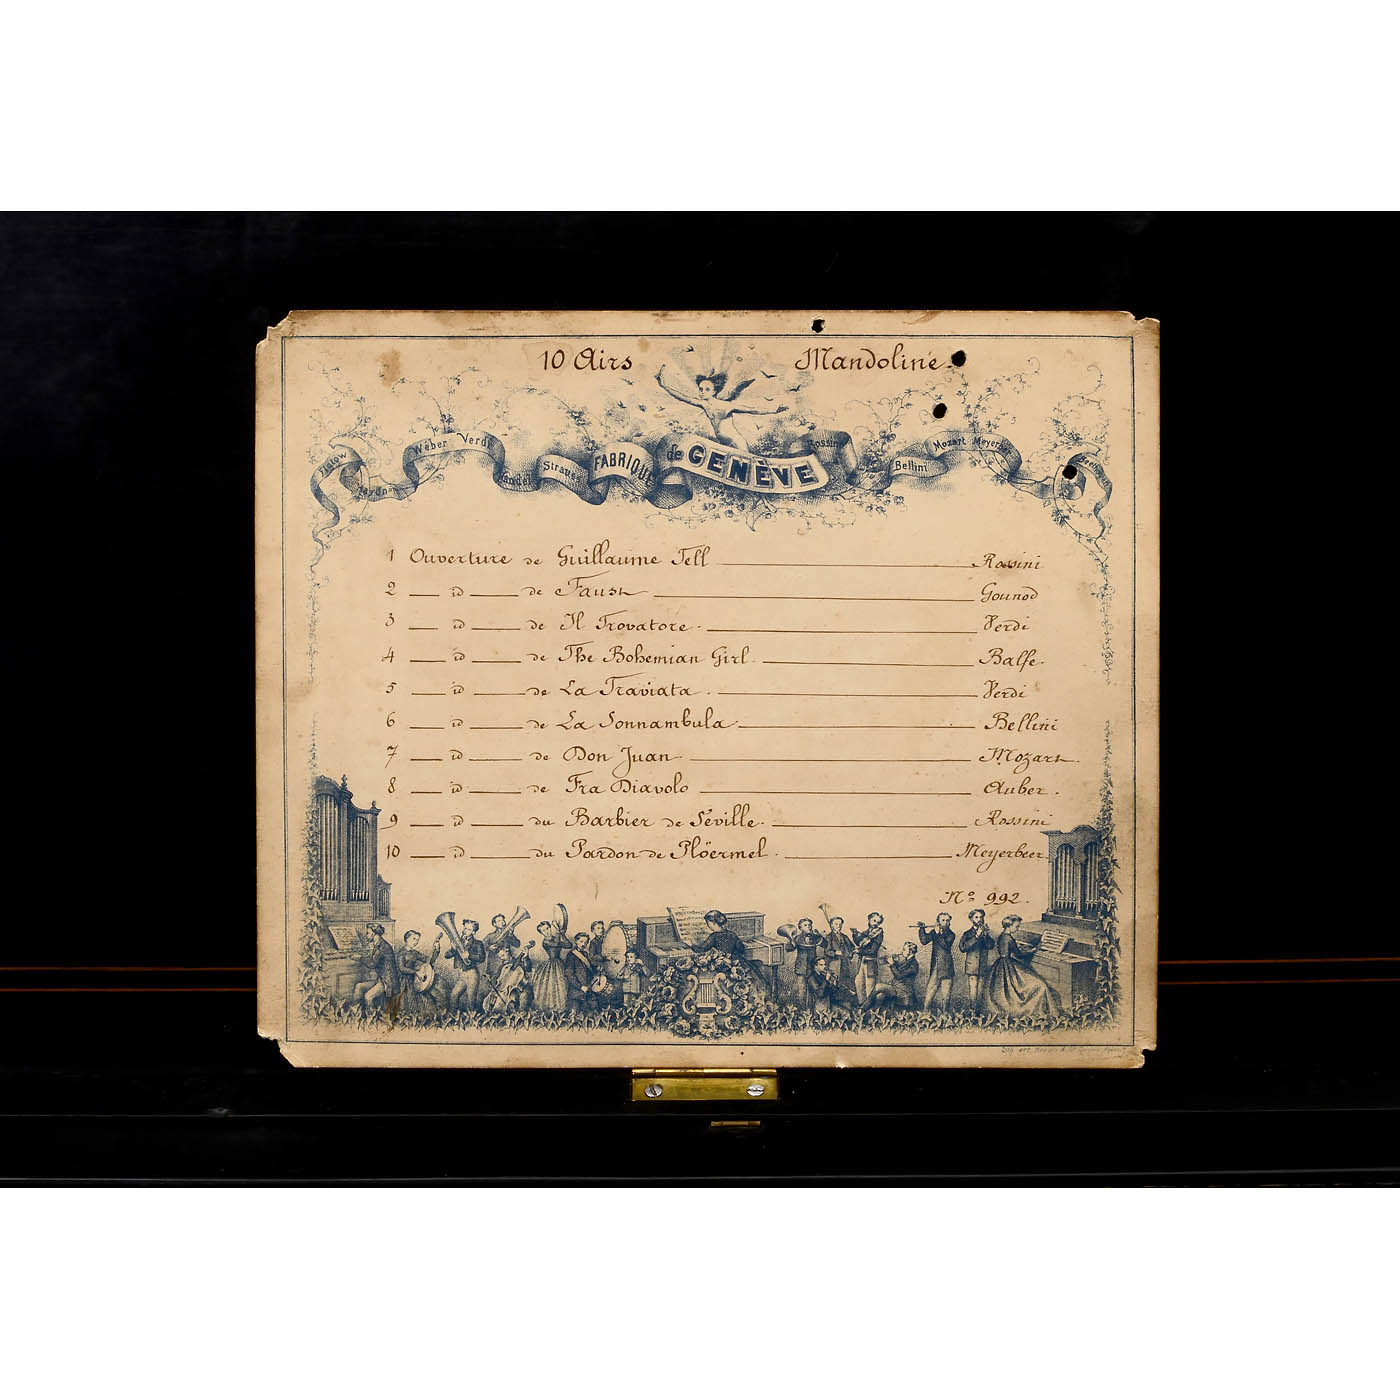 10 Airs Mandoline.
Flotow Haydn Weber Verdi Handel Strauss FABRIQUE de GENÈVE Rossini Bellini Mozart Meyerbeer Beethoven
1 Ouverture de Guillaume Tell Rossini
2 — id — de Faust Gounod
3 — id — de Il Trovatore. Verdi
4 — id — de The Bohemian Girl. Balfe.
5 — id — de La Traviata. Verdi
6 — id — de La Sonnambula. Bellini
7 — id — de Don Juan Mozart.
8 — id — de Fra Diavolo Auber.
9 — id — du Barbier de Séville. Rossini
10 — id — du Pardon de Plöermel. Meyerbeer
Nº 992.